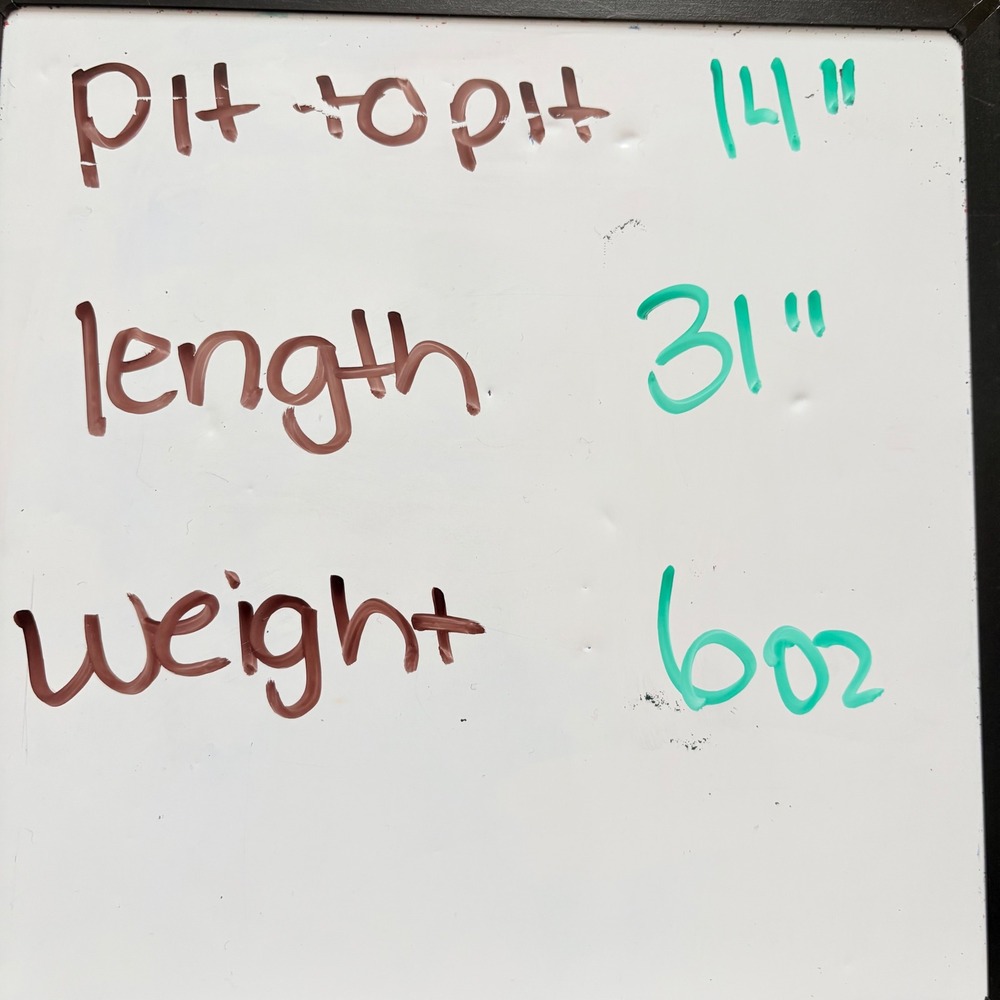 pit to pit 14"
length 31"
weight 6oz